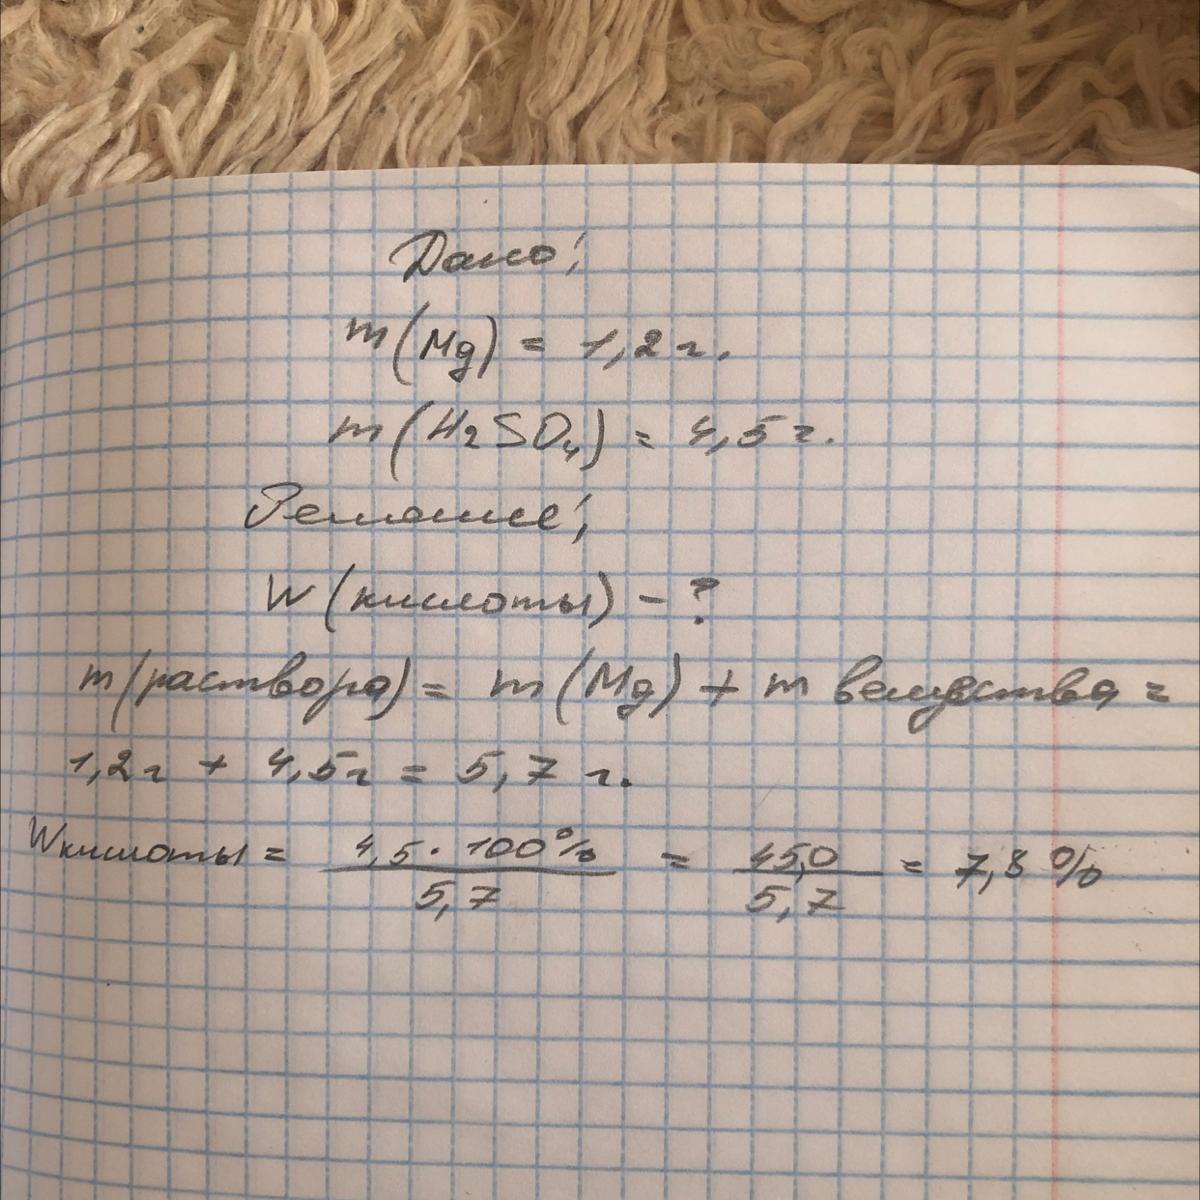 Дано:
m(Mg) = 1,2 г.
m(H₂SO₄) = 4,5 г.
Решение:
W (кислоты) - ?
m(раствора) = m(Mg) + m вещества =
1,2г + 4,5г = 5,7 г.
W кислоты = 4,5 · 100% / 5,7 = 45,0 / 5,7 = 7,8 %